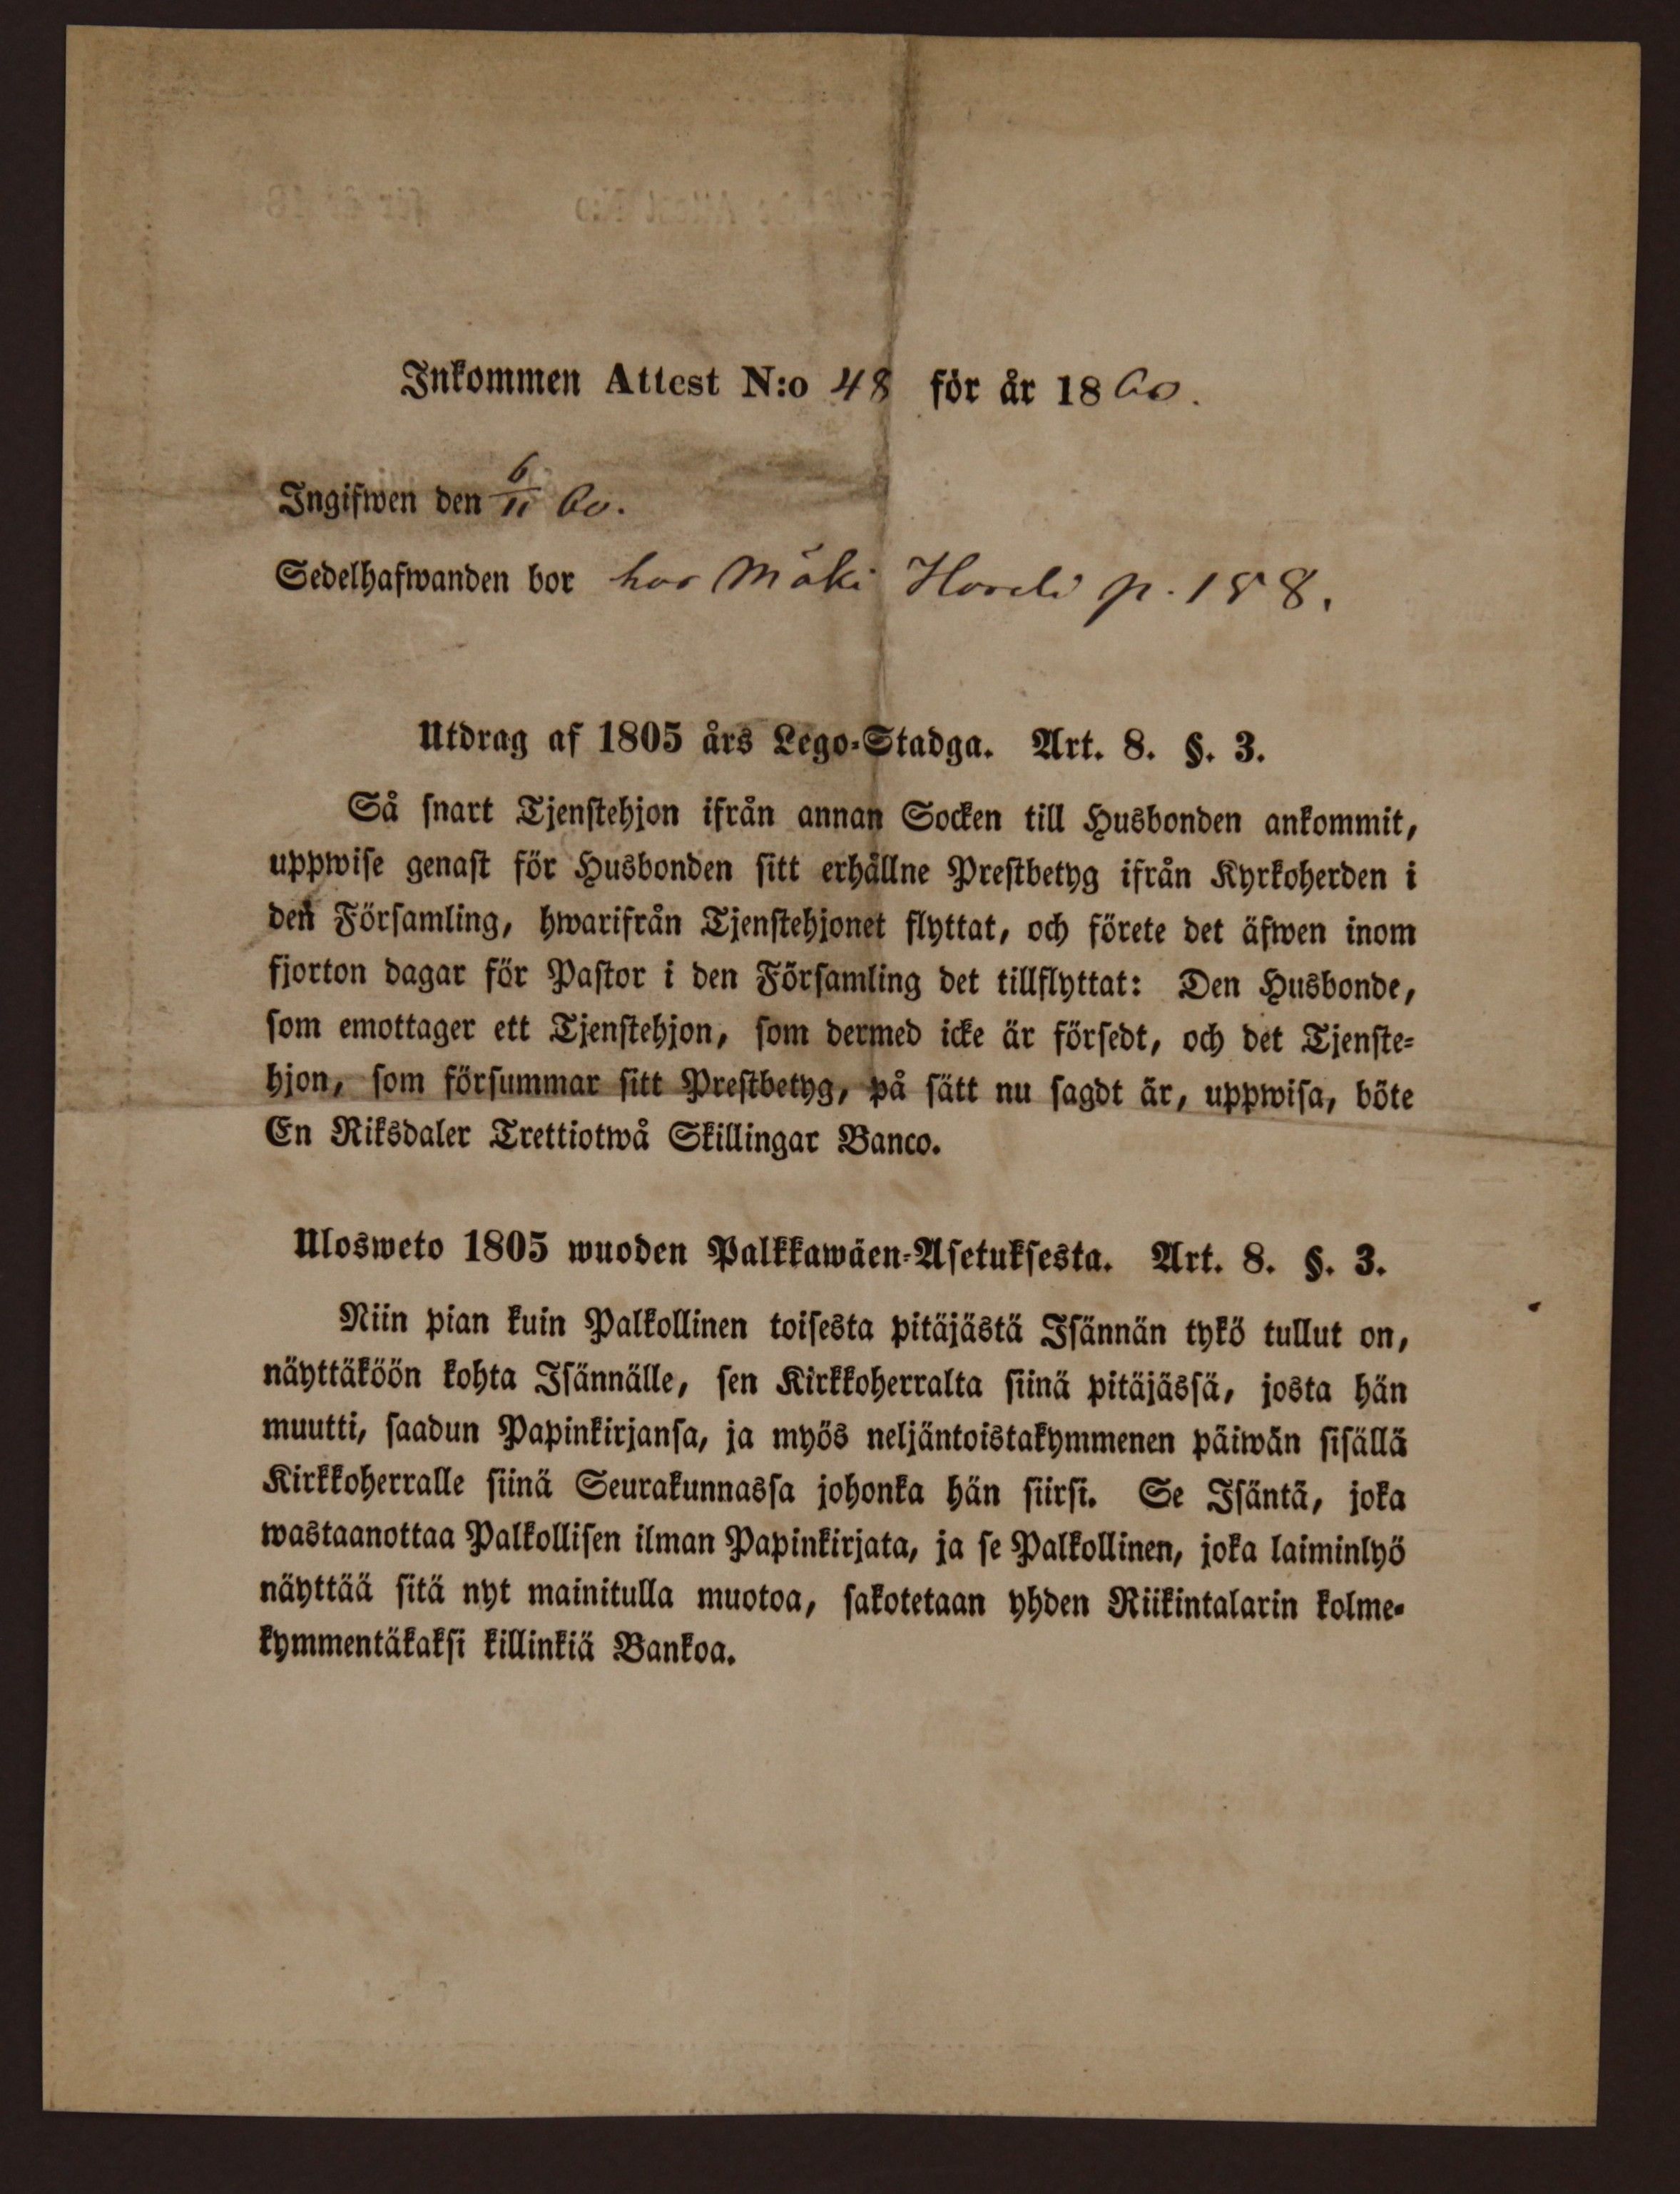 Inkommen Attest N:o 48 för år 1860.
Ingifwen den 6/11 60.
Sedelhafwanden bor hos Mäki p. 188.
Utdrag af 1805 års Lego-Stadga. Art. 8. §. 3.
Så snart Tjenstehjon ifrån annan Socken till Husbonden ankommit,
uppwise genast för Husbonden sitt erhållne Prestbetyg ifrån Kyrkoherden i
den Församling, hwarifrån Tjenstehjonet flyttat, och förete det äfwen inom
fjorton dagar för Pastor i den Församling det tillflyttat: Den Husbonde,
som emottager ett Tjenstehjon, som dermed icke är försedt, och det Tjenste-
hjon, som försummar sitt Prestbetyg, på sätt nu sagdt är, uppwisa, böte
En Riksdaler Trettiotwå Skillingar Banco.
Ulosweto 1805 wuoden Palkkawäen-Asetuksesta. Art. 8. §. 3.
Niin pian kuin Palkollinen toisesta pitäjästä Isännän tykö tullut on,
näyttäköön kohta Isännälle, sen Kirkkoherralta siinä pitäjässä, josta hän
muutti, saadun Papinkirjansa, ja myös neljäntoistakymmenen päiwän sisällä
Kirkkoherralle siinä Seurakunnassa johonka hän siirsi. Se Isäntä, joka
wastaanottaa Palkollisen ilman Papinkirjata, ja se Palkollinen, joka laiminlyö
näyttää sitä nyt mainitulla muotoa, sakotetaan yhden Riikintalarin kolme-
kymmentäkaksi killinkiä Bankoa.